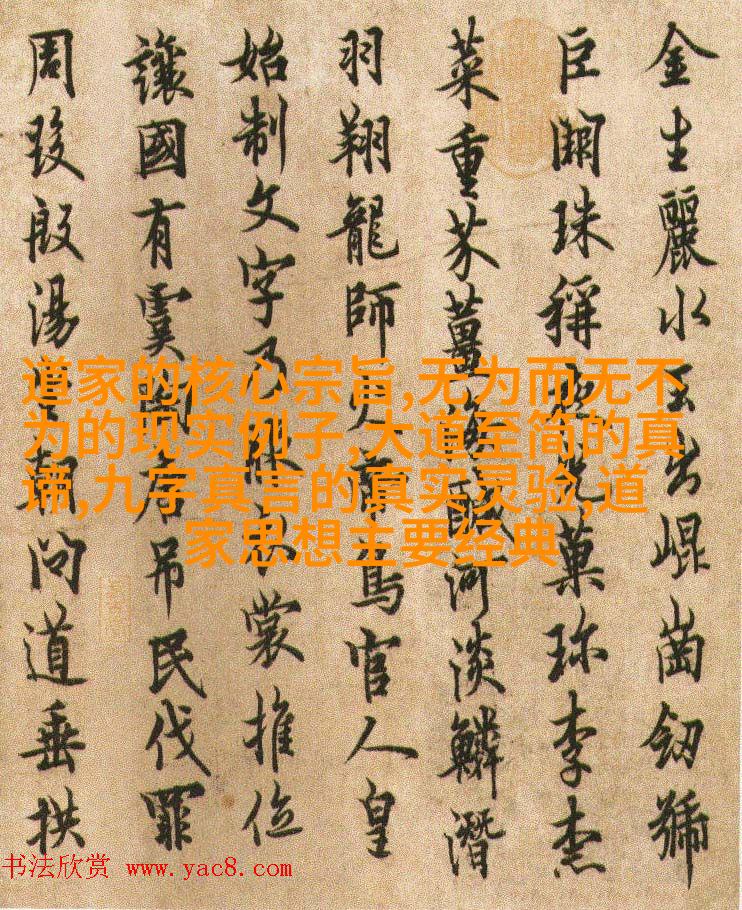 金生麗水玉出崐崗劒號
巨闕珠稱夜光菓珍李柰
菜重芥薑海醎河淡鱗潛
羽翔龍師火帝鳥官人皇
始制文字乃服衣裳推位
讓國有虞陶唐吊民伐罪
周發殷湯坐朝問道垂拱
道家的核心宗旨,无为而无不
为的现实例子,大道至简的真
谛,九字真言的真实灵验,道
家思想主要经典
书法欣赏 www.yac8.com